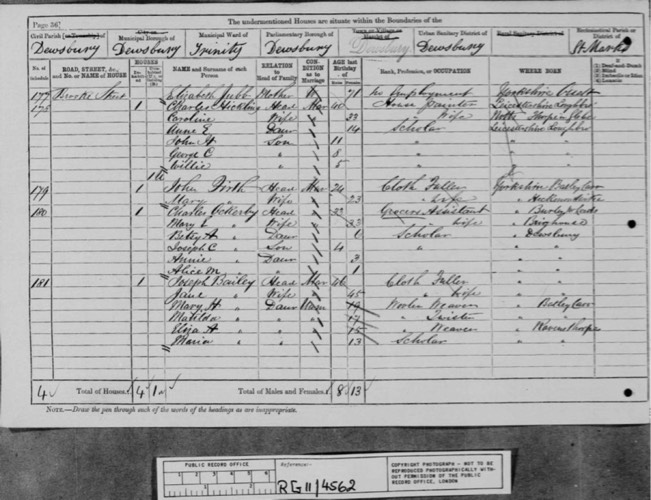 Page 36
The undermentioned Houses are situate within the Boundaries of the
Civil Parish [or Township] of Municipal Borough of Municipal Ward of Parliamentary Borough of Town or Village or Hamlet of Urban Sanitary District of Rural Sanitary District of Ecclesiastical Parish or District of
Dewsbury Dewsbury Trinity Dewsbury Dewsbury Dewsbury St Marks
No. of Schedule ROAD, STREET, &c., and No. or NAME of HOUSE HOUSES NAME and Surname of each Person RELATION to Head of Family CONDITION as to Marriage AGE last Birthday of Rank, Profession, or OCCUPATION WHERE BORN
177 Street Elizabeth Jubb Mother W 71 No Employment Yorkshire
178 1 Charles Hickling Head Mar 40 House Painter Leicestershire Loughboro
Caroline " Wife " 33 " Wife Notts
Anne E. " Daur 14 Scholar Leicestershire Loughboro
John H " Son 11 " "
George C " " 8 " "
Willie " " 5
1u
179 1 John Firth Head Mar 24 Cloth Fuller Yorkshire Batley Carr
Mary " Wife " 23 " wife " Heckmondwike
180 1 Charles Head 32 Grocers Assistant "
Mary E " Wife " " wife " Brighouse
Betsy A " Daur Scholar " Dewsbury
Joseph C " Son 4 "
Annie " Daur 3
Alice M " " 1
181 1 Joseph Bailey Head Mar 46 Cloth Fuller
Jane " Wife " 45 " Wife
Mary H " Daur Unm 19 Woolen Weaver " Batley Carr
Matilda " " 17 " Twister
Eliza A " " 15 " Weaver " Ravensthorpe
Maria " " 13 Scholar
4 Total of Houses 4 1u Total of Males and Females 8 13
NOTE.—Draw the pen through such of the words of the headings as are inappropriate.
PUBLIC RECORD OFFICE
Reference:-
RG 11/4562
COPYRIGHT PHOTOGRAPH - NOT TO BE REPRODUCED PHOTOGRAPHICALLY WITHOUT PERMISSION OF THE PUBLIC RECORD OFFICE, LONDON